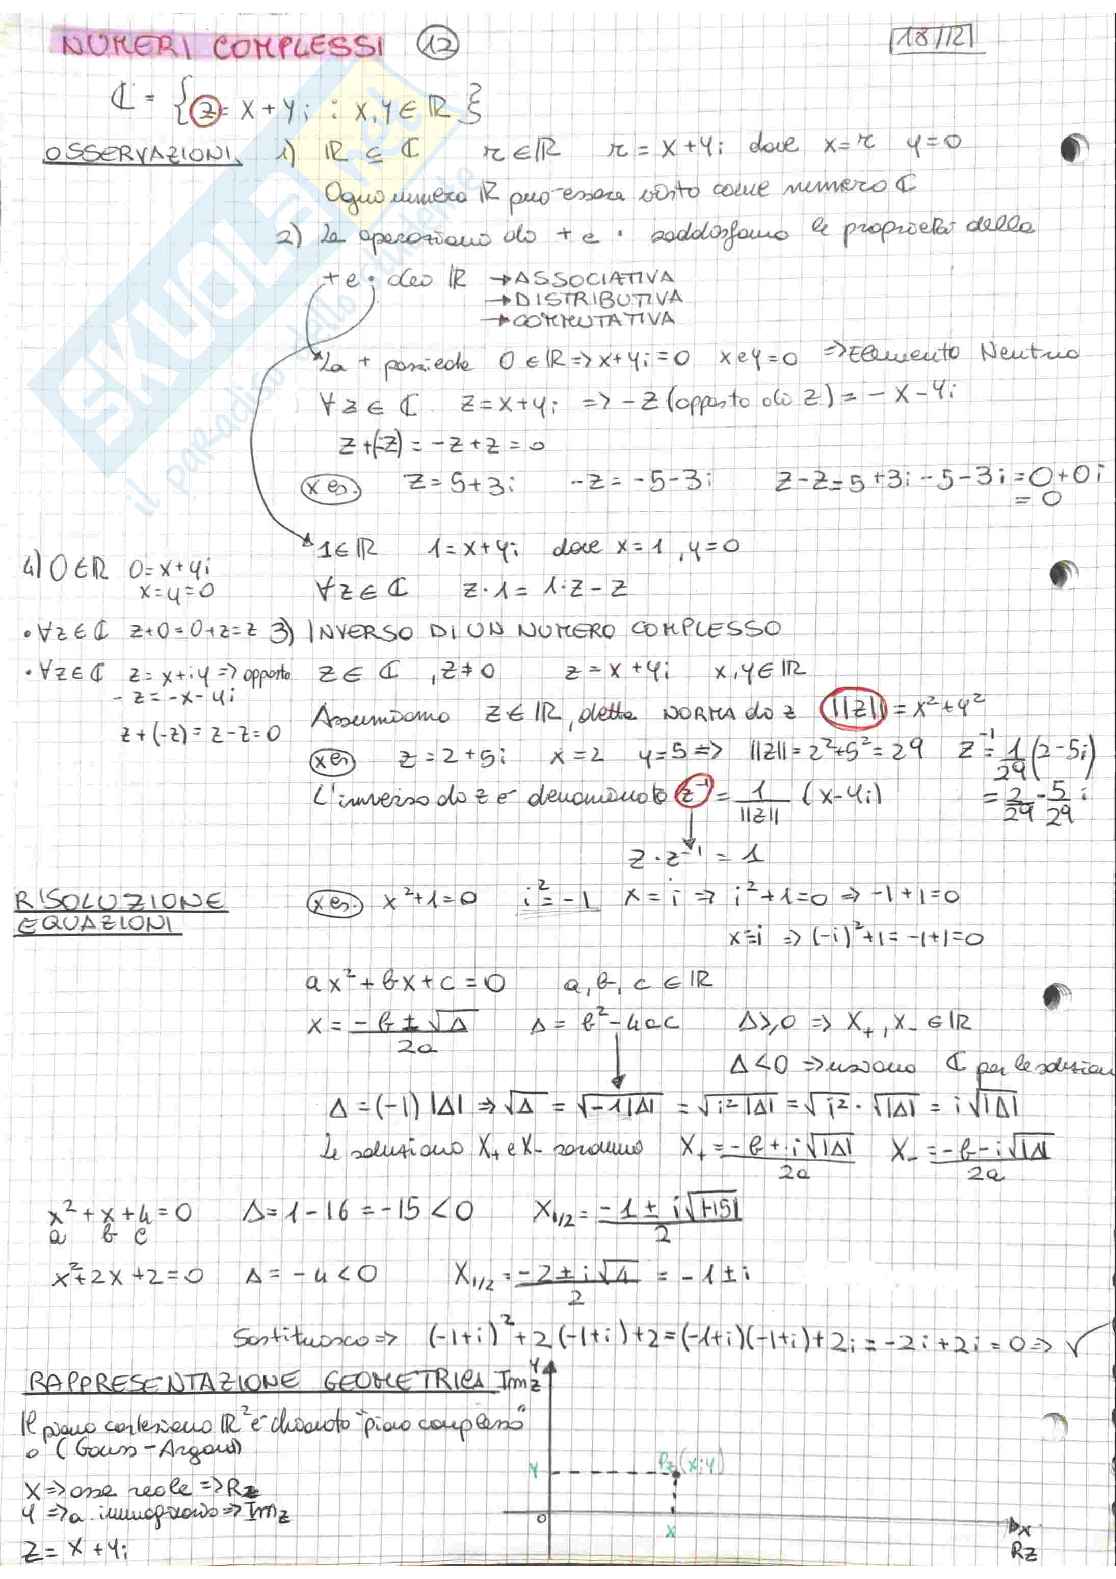 NUMERI COMPLESSI 12
18/12
ℂ = {z = x + yi : x, y ∈ ℝ}
OSSERVAZIONI 1) ℝ ⊆ ℂ r ∈ ℝ r = x + yi dove x = r y = 0
Ogni numero ℝ può essere visto come numero ℂ
2) Le operazioni di + e · soddisfano le proprietà della
+ e · dei ℝ → ASSOCIATIVA
→ DISTRIBUTIVA
→ COMMUTATIVA
La + possiede 0 ∈ ℝ => x + yi = 0 x e y = 0 => Elemento Neutro
∀ z ∈ ℂ z = x + yi => -z (opposto di z) = -x - yi
z + (-z) = -z + z = 0
x es. z = 5 + 3i -z = -5 - 3i z - z = 5 + 3i - 5 - 3i = 0 + 0i
= 0
1 ∈ ℝ 1 = x + yi dove x = 1, y = 0
∀ z ∈ ℂ z · 1 = 1 · z - z
4) 0 ∈ ℝ 0 = x + yi
x = y = 0
• ∀ z ∈ ℂ z + 0 = 0 + z = z
• ∀ z ∈ ℂ z = x + iy => opposto
- z = -x - yi
z + (-z) = z - z = 0
3) INVERSO DI UN NUMERO COMPLESSO
z ∈ ℂ, z ≠ 0 z = x + yi x, y ∈ ℝ
Assumiamo z ∈ ℝ, detta NORMA di z ||z|| = x² + y²
x es z = 2 + 5i x = 2 y = 5 => ||z|| = 2² + 5² = 29 z⁻¹ = 1/29 (2 - 5i)
= 2/29 - 5/29 i
L'inverso di z è denominato z⁻¹ = 1/||z|| (x - yi)
z · z⁻¹ = 1
RISOLUZIONE
EQUAZIONI
x es. x² + 1 = 0 i² = -1 x = i => i² + 1 = 0 => -1 + 1 = 0
x = -i => (-i)² + 1 = -1 + 1 = 0
ax² + bx + c = 0 a, b, c ∈ ℝ
x = (-b ± √Δ)/2a Δ = b² - 4ac Δ ≥ 0 => x₊, x₋ ∈ ℝ
Δ < 0 => usiamo ℂ per le soluzion
Δ = (-1) |Δ| => √Δ = √-1|Δ| = √i²|Δ| = √i² · √|Δ| = i√|Δ|
Le soluzioni x₊ e x₋ saranno x₊ = (-b + i√|Δ|)/2a x₋ = (-b - i√|Δ|)/2a
x² + x + 4 = 0 Δ = 1 - 16 = -15 < 0 x₁/₂ = (-1 ± i√|-15|)/2
a b c
x² + 2x + 2 = 0 Δ = -4 < 0 x₁/₂ = (-2 ± i√4)/2 = -1 ± i
Sostituisco => (-1+i)² + 2(-1+i) + 2 = (-1+i)(-1+i) + 2i = -2i + 2i = 0 => √
RAPPRESENTAZIONE GEOMETRICA
Il piano cartesiano ℝ² è chiamato "piano complesso"
o (Gauss-Argand)
x => asse reale => Rz
y => a. immaginario => Imz
z = x + yi
y
Imz
y
Pz (x; y)
0
x
x
Rz
SKUOLA.net
il paradiso dello studente